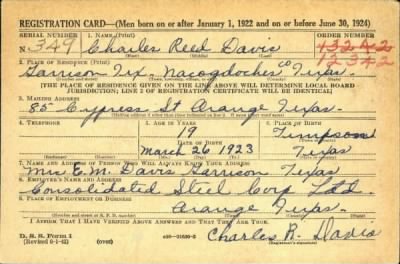 REGISTRATION CARD—(Men born on or after January 1, 1922 and on or before June 30, 1924)
SERIAL NUMBER 1. NAME (Print) ORDER NUMBER
N 349 Charles Reed Davis 132A2
12342
2. PLACE OF RESIDENCE (Print)
Garrison Tex. Nacogdoches Co Texas
(THE PLACE OF RESIDENCE GIVEN ON THE LINE ABOVE WILL DETERMINE LOCAL BOARD
JURISDICTION; LINE 2 OF REGISTRATION CERTIFICATE WILL BE IDENTICAL)
3. MAILING ADDRESS
85 Cypress St Orange Texas
4. TELEPHONE 5. AGE IN YEARS 6. PLACE OF BIRTH
19 Timpson
DATE OF BIRTH
March 26 1923 Texas
7. NAME AND ADDRESS OF PERSON WHO WILL ALWAYS KNOW YOUR ADDRESS
Mrs E. M. Davis Garrison Texas
8. EMPLOYER'S NAME AND ADDRESS
Consolidated Steel Corp Ltd.
9. PLACE OF EMPLOYMENT OR BUSINESS
Orange Texas
I AFFIRM THAT I HAVE VERIFIED ABOVE ANSWERS AND THAT THEY ARE TRUE.
D. S. S. Form 1
(Revised 6-1-42) (over)
Charles R. Davis
(Registrant's signature)